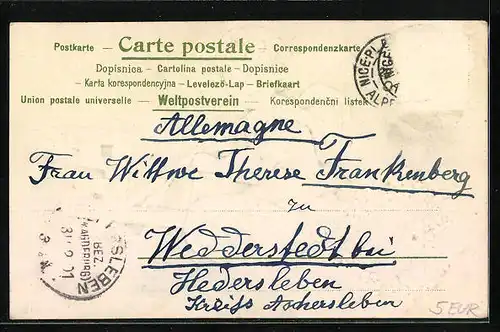 Postkarte – Carte postale – Correspondenzkarte
Dopisnica – Cartolina postale – Dopisnice
– Karta korespondencyjna – Levelező-Lap – Briefkaart
Union postale universelle – Weltpostverein – Korespondenční listek
NICE-PL
ALP
Allemagne
Frau Wittwe Therese Frankenberg
zu
Wedderstedt bei
Hedersleben
Kreiss Aschersleben
SLEBEN
BEZ.
5 EUR